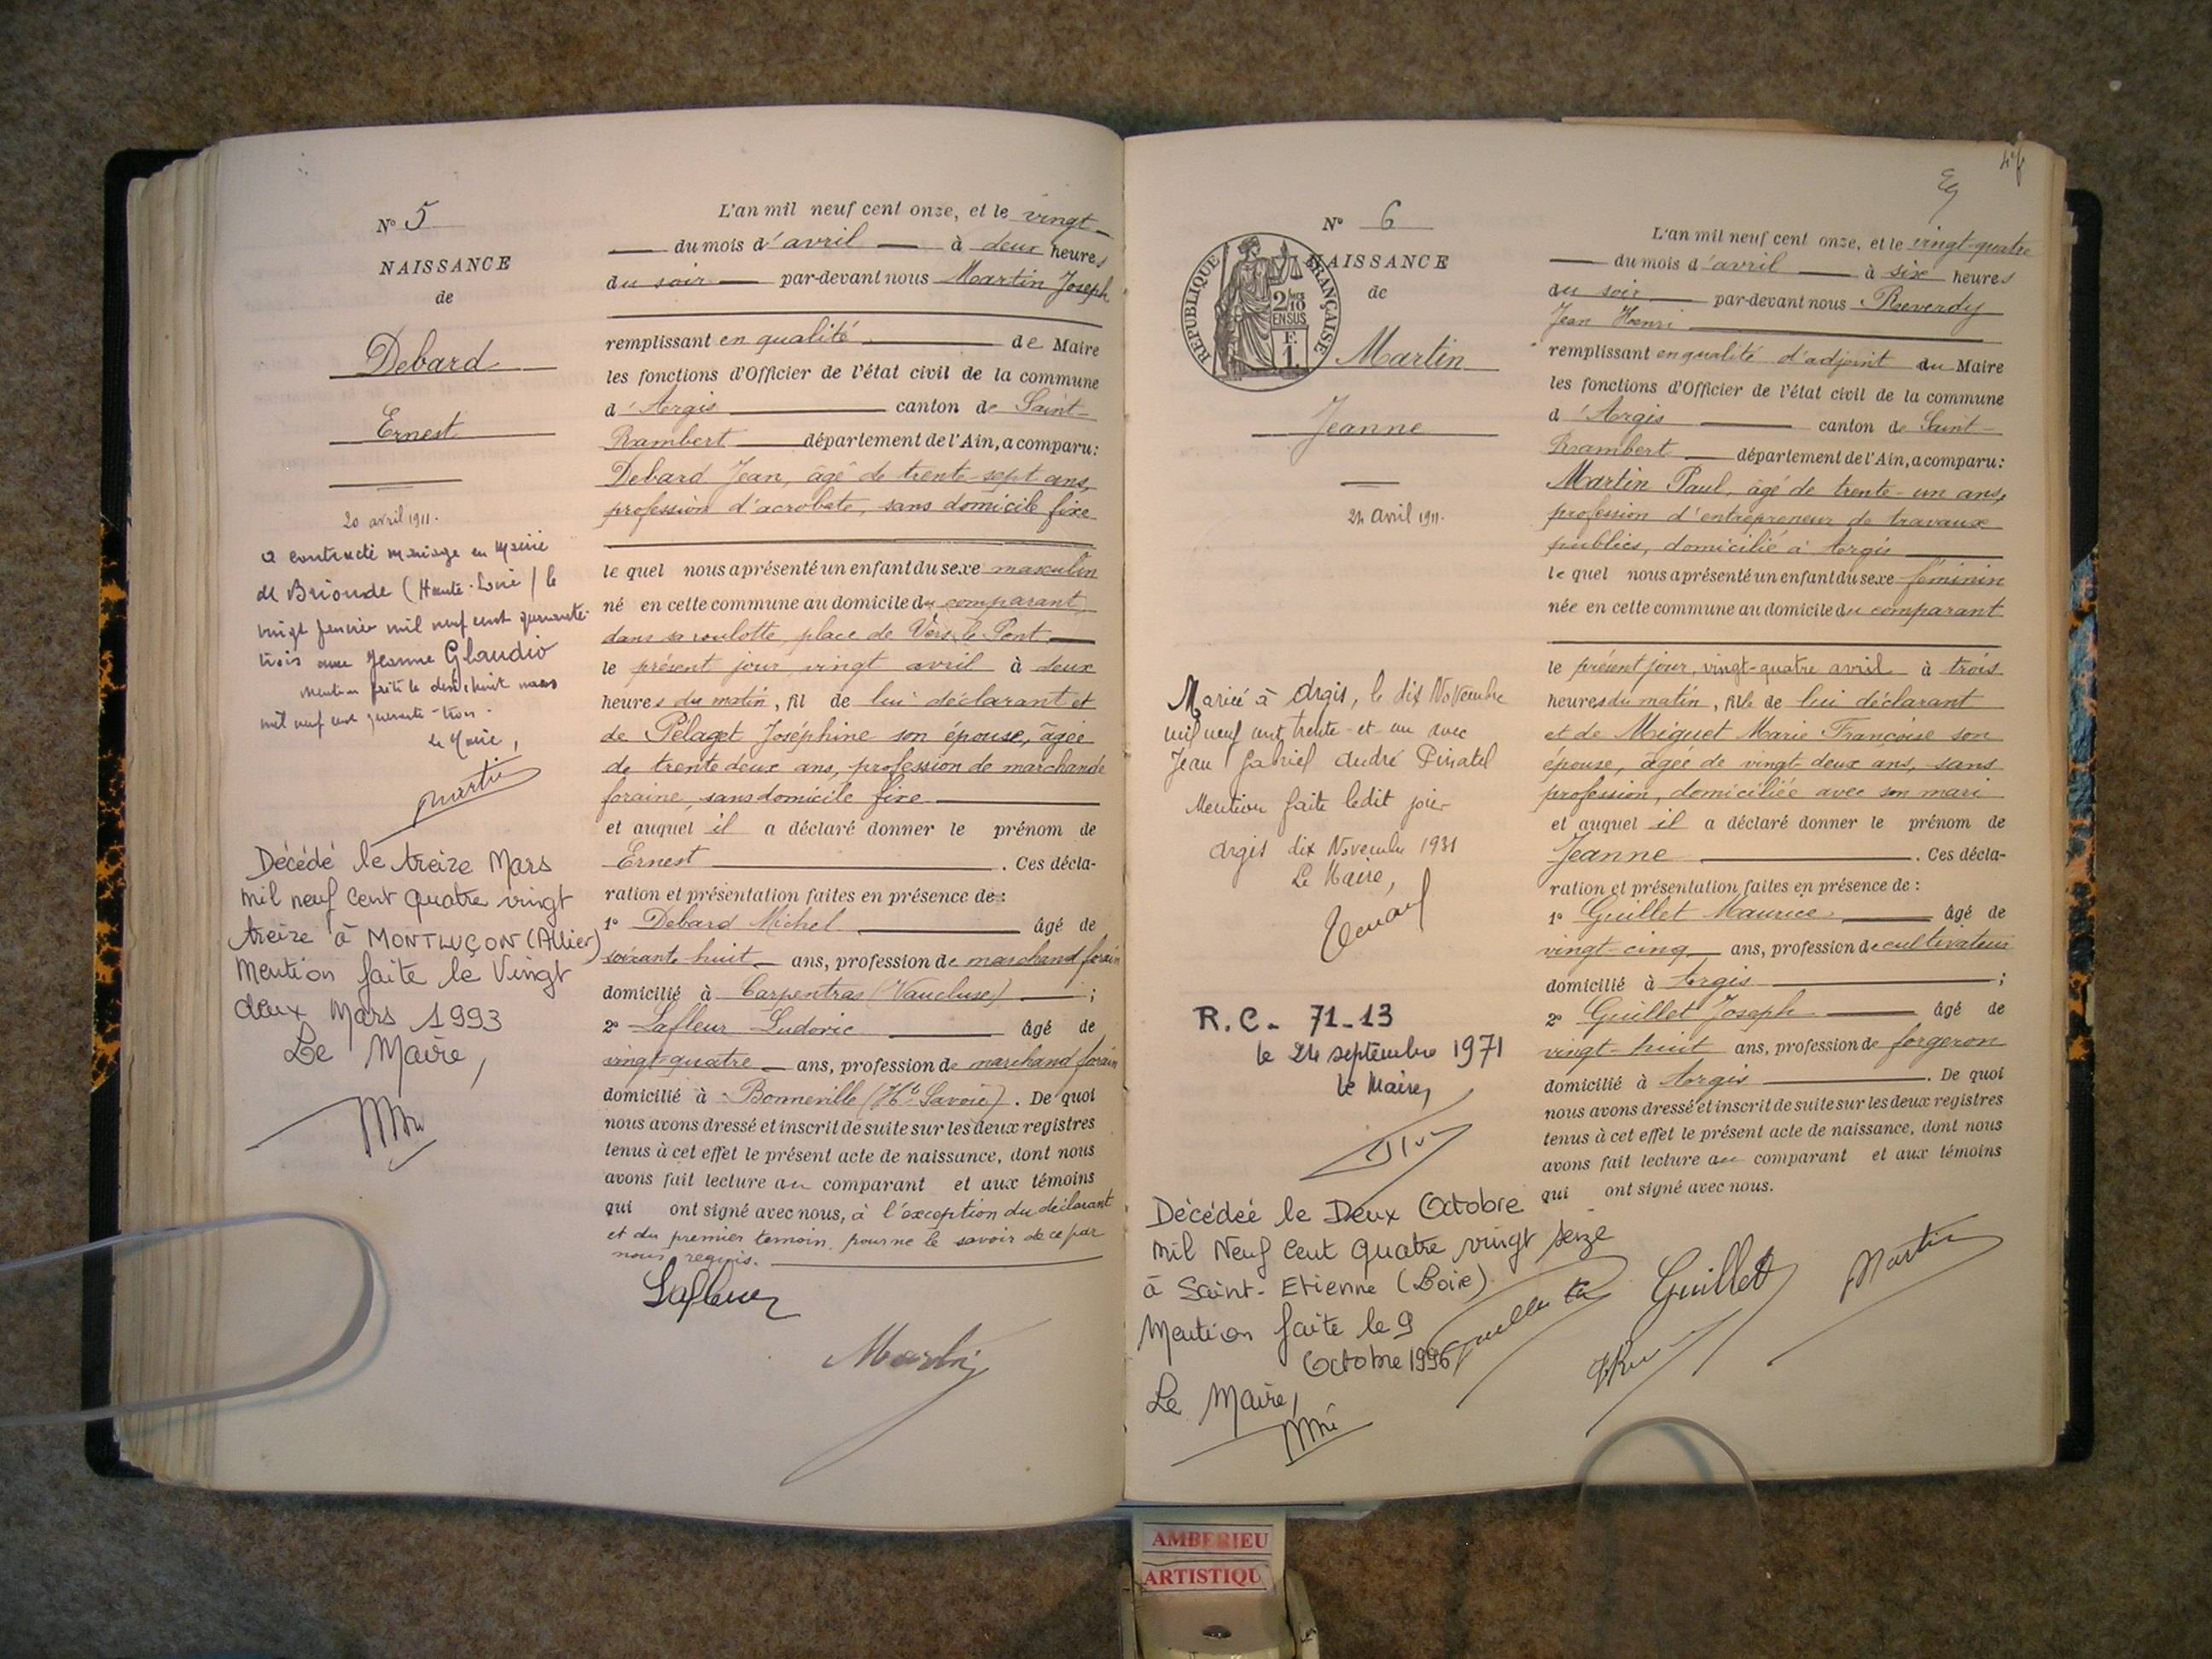 N° 5
NAISSANCE
de
Debard
Ernest
20 avril 1911.
a contracté mariage en Mairie
de Brioude (Haute-Loire) le
vingt janvier mil neuf cent quarante-
trois avec Jeanne Glaudio
Mention faite le dix huit mars
mil neuf cent quarante-trois.
Le Maire,
Martin
Décédé le treize Mars
mil neuf cent quatre vingt
treize à MONTLUÇON (Allier)
Mention faite le Vingt
deux Mars 1993
Le Maire,
L'an mil neuf cent onze, et le vingt
du mois d'avril à deux heures
du soir par-devant nous Martin Joseph
remplissant en qualité de Maire
les fonctions d'Officier de l'état civil de la commune
d'Argis canton de Saint-
Rambert département de l'Ain, a comparu:
Debard Jean, âgé de trente-sept ans,
profession d'acrobate, sans domicile fixe
le quel nous a présenté un enfant du sexe masculin
né en cette commune au domicile du comparant,
dans sa roulotte, place de Vers le Pont
le présent jour vingt avril à deux
heures du matin, fil de lui déclarant et
de Pélaget Joséphine son épouse, âgée
de trente deux ans, profession de marchande
foraine, sans domicile fixe
et auquel il a déclaré donner le prénom de
Ernest . Ces décla-
ration et présentation faites en présence de :
1° Debard Michel âgé de
soixante huit ans, profession de marchand forain
domicilié à Carpentras (Vaucluse) ;
2° Lafleur Ludovic âgé de
vingt-quatre ans, profession de marchand forain
domicilié à Bonneville (Hte Savoie). De quoi
nous avons dressé et inscrit de suite sur les deux registres
tenus à cet effet le présent acte de naissance, dont nous
avons fait lecture au comparant et aux témoins
qui ont signé avec nous, à l'exception du déclarant
et du premier temoin, pour ne le savoir de ce par
nous requis.
Lafleur
Martin
47
N° 6
NAISSANCE
de
RÉPUBLIQUE FRANÇAISE
2/10 EN SUS
F. 1.
Martin
Jeanne
24 avril 1911.
Mariée à Argis, le dix Novembre
mil neuf cent trente-et-un avec
Jean Gabriel André Pinatel
Mention faite ledit jour
Argis dix Novembre 1931
Le Maire,
R.C. 71-13
le 24 septembre 1971
Le Maire,
Décédée le Deux Octobre
Mil Neuf Cent Quatre vingt seize
à Saint-Etienne (Loire)
Mention faite le 9
Octobre 1996
Le Maire,
L'an mil neuf cent onze, et le vingt-quatre
du mois d'avril à six heures
du soir par-devant nous Reverdy
Jean Henri
remplissant en qualité d'adjoint du Maire
les fonctions d'Officier de l'état civil de la commune
d'Argis canton de Saint-
Rambert département de l'Ain, a comparu:
Martin Paul, âgé de trente-un ans,
profession d'entrepreneur de travaux
publics, domicilié à Argis
le quel nous a présenté un enfant du sexe féminin
née en cette commune au domicile du comparant
le présent jour, vingt-quatre avril à trois
heures du matin, fille de lui déclarant
et de Miguet Marie Françoise son
épouse, âgée de vingt-deux ans, sans
profession, domiciliée avec son mari
et auquel il a déclaré donner le prénom de
Jeanne . Ces décla-
ration et présentation faites en présence de :
1° Guillet Maurice âgé de
vingt-cinq ans, profession de cultivateur
domicilié à Argis ;
2° Guillet Joseph âgé de
vingt-huit ans, profession de forgeron
domicilié à Argis . De quoi
nous avons dressé et inscrit de suite sur les deux registres
tenus à cet effet le présent acte de naissance, dont nous
avons fait lecture au comparant et aux témoins
qui ont signé avec nous.
Guillet
Martin
AMBERIEU
ARTISTIQU